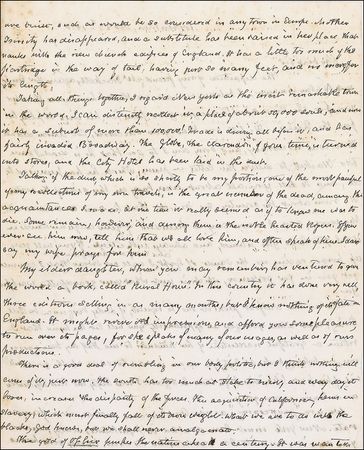 are brick, such as would be so considered in any town in Europe. Mother
Trinity has disappeared, and a substitute has been raised in her place that
ranks with the new church edifices of England. It has a little too much of the
partridge in the way of tail, having just so many feet, and no more for
its length.
Taking all things together, I regard New York as the most remarkable town
in the world. I can distinctly recollect it a place of about 50,000 souls, and now
it has a subset of more than 400,000! Trade is driving all before it, and has
fairly invaded Broadway. The Globe, the Clarendon of your time, is turned
into stores, and the City Hotel has been laid in the dust.
Talking of the dust which is so shortly to be my portion, one of the most painful
of my recollections of my own travels, is the great number of the dead, among the
acquaintances I made. At one time it really seemed as if to know me was to
die. Some remain, however, and among them is the noble hearted Rogers. If you
ever see him now, tell him that we all love him, and often speak of him. I can
say my wife prays for him.
My eldest daughter, whom you may remember has ventured to give
the world a book, called "Rural Hours". In this country it has done very well,
three editions selling in as many months, but I know nothing of its fate in
England. It might revive old impressions, and afford you some pleasure
to run over its pages, for she speaks of many of our usages, as well as of our
productions.
There is a good deal of rumbling in our body politic, but I think nothing will
come of it, just now. The South has too much at stake to
in course the disparity of the force. The acquisition of California hems in
slavery, which must finally fall of its own weight. What we are to do with the
blacks, God knows, but we shall never amalgamate.
This gold of Ophir pushes the nation ahead a century. It was wanted